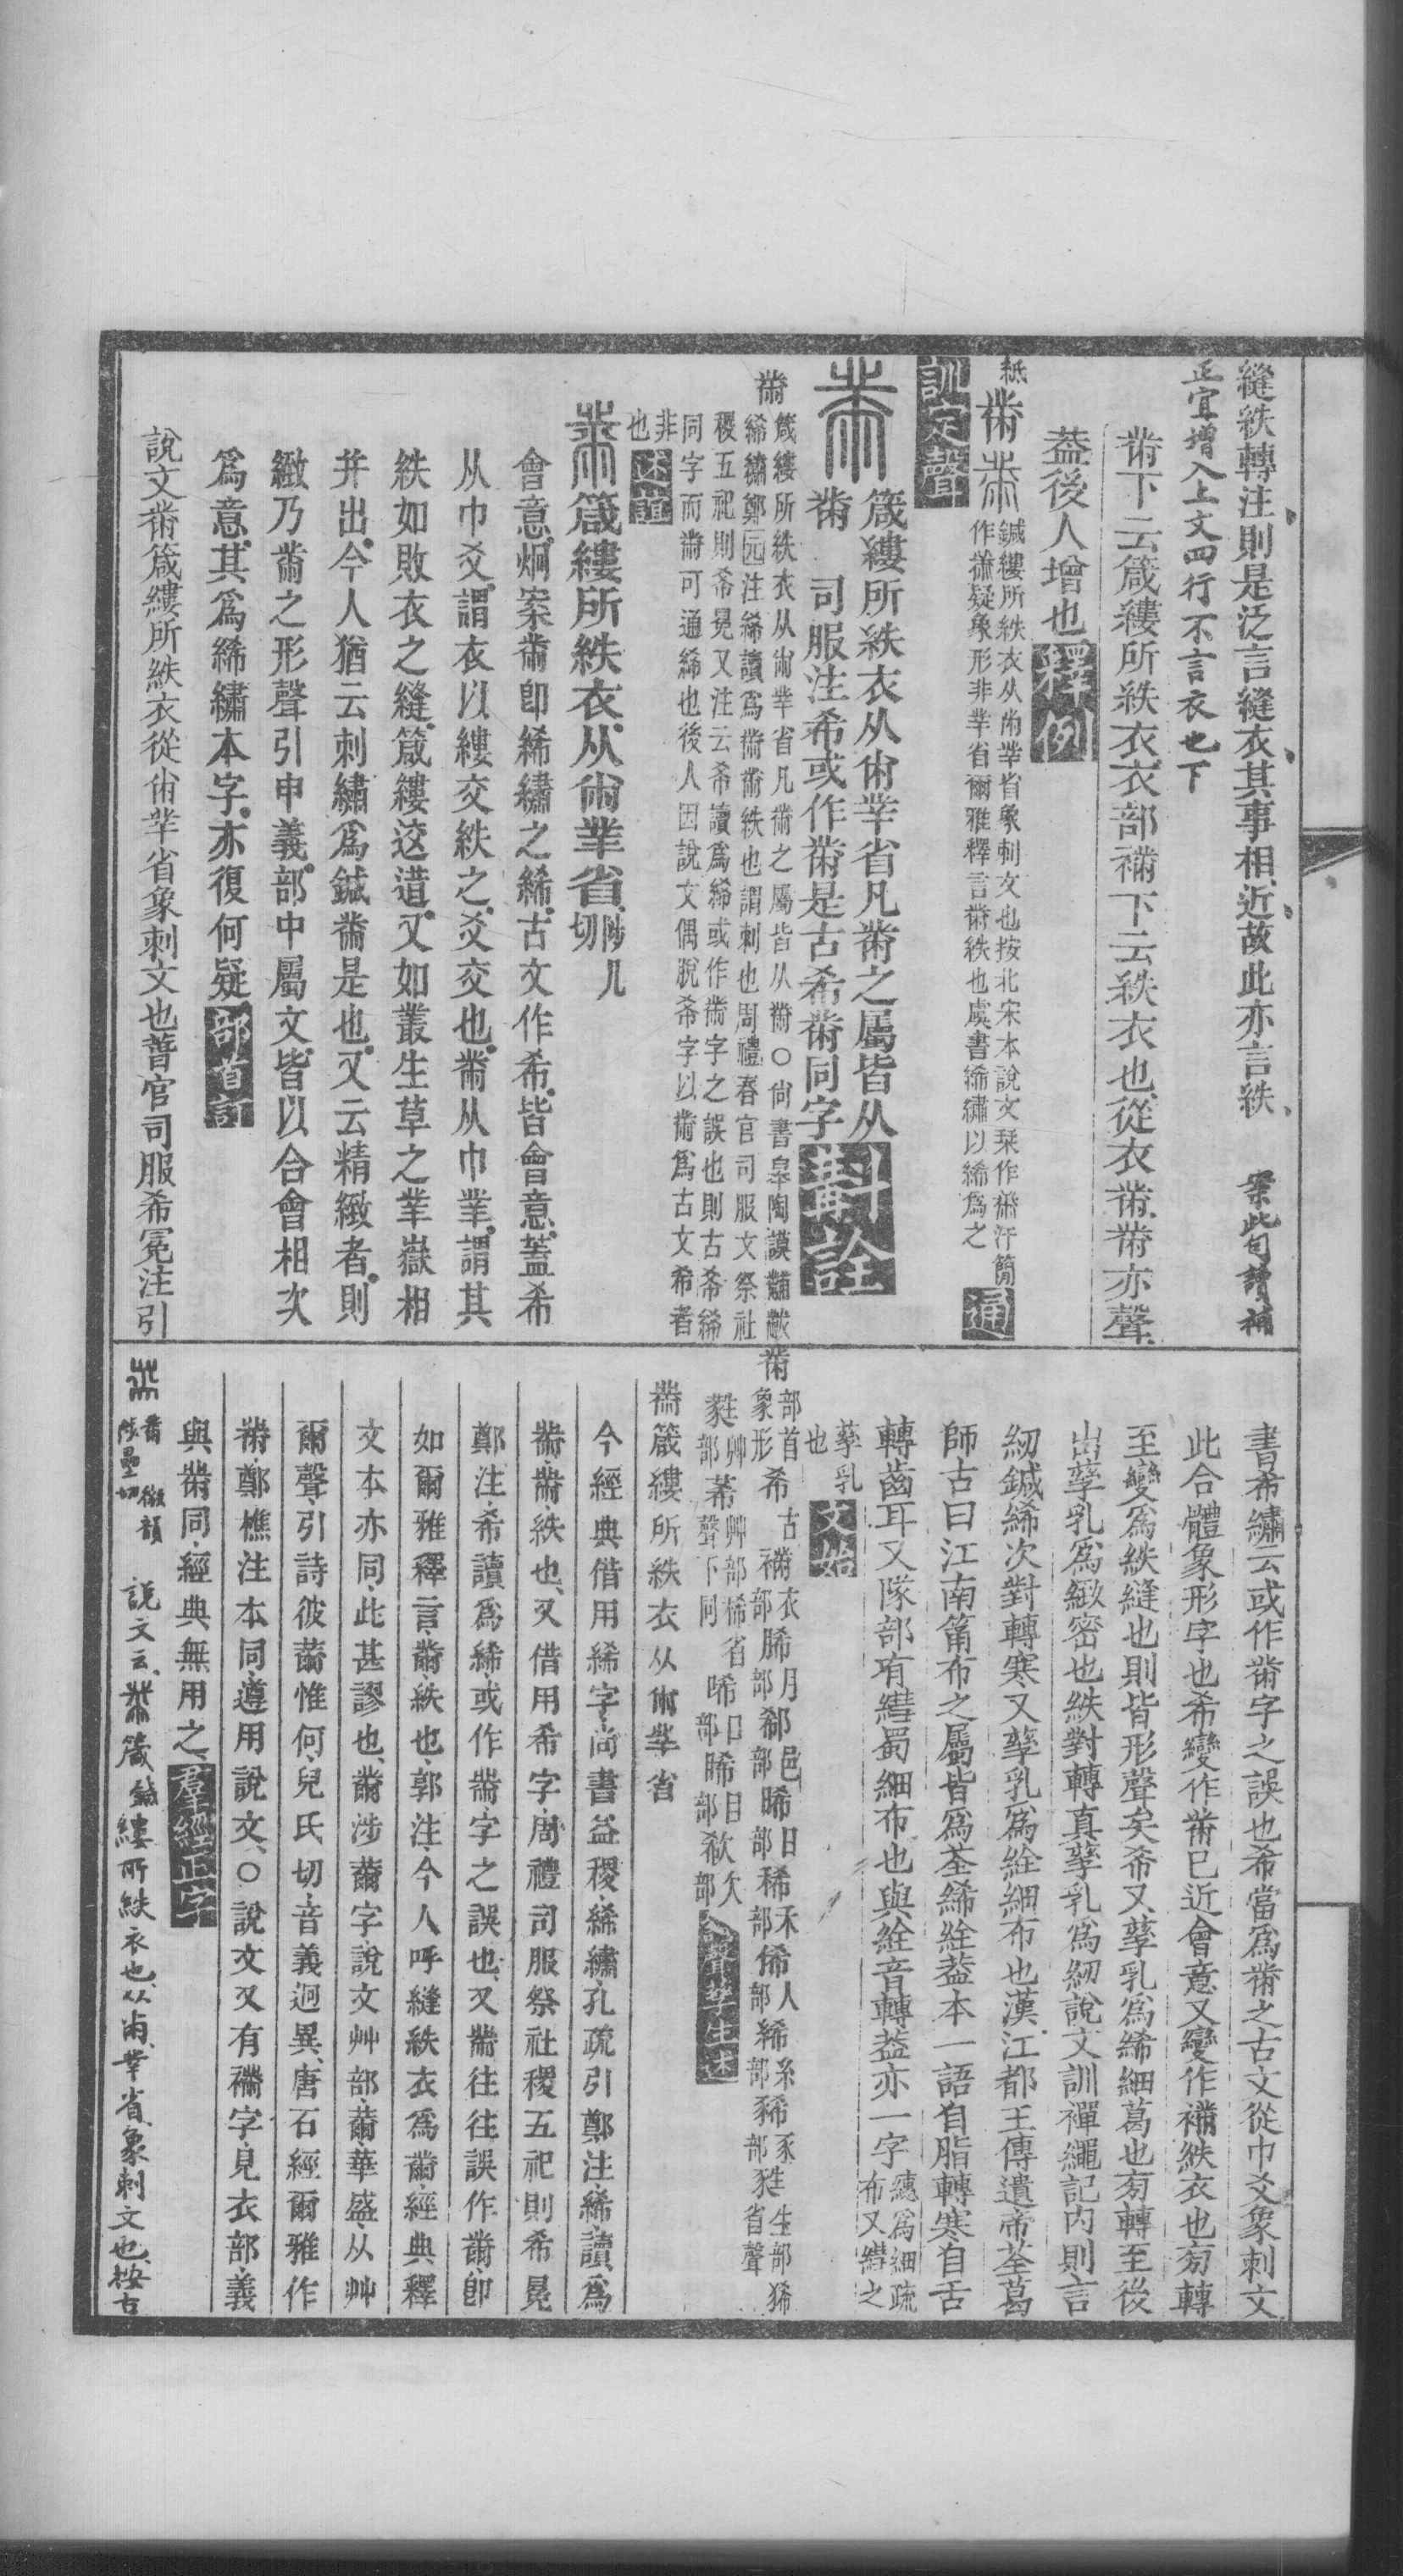 縫紩轉注則是泛言縫衣其事相近故此亦言紩　案此句讀補
正宜增入上文四行不言衣也下
黹下云箴縷所紩衣衣部襧下云紩衣也從衣黹黹亦聲
葢後人增也釋例
黹
鍼縷所紩衣从㡀丵省象刺文也按北宋本說文
形非丵省爾雅釋言黹紩也虞書絺繡以絺爲之通
訓定聲
黹箴縷所紩衣从㡀丵省凡黹之屬皆从
黹　司服注希或作黹是古希黹同字斠詮
黹箴縷所紩衣从㡀丵省凡黹之屬皆从黹○尙書皋陶謨黼黻
絺繡鄭注絺讀爲黹黹紩也謂刺也周禮春官司服文祭社
稷五祀則希冕又注云希讀爲絺或作黹字之誤也則古希絺
同字而黹可通絺也後人因說文偶脫希字以黹爲古文希者
非也述誼
黹箴縷所紩衣从㡀丵省陟几切
會意炯案黹卽絺繡之絺古文作希皆會意葢希
从巾爻謂衣以縷交紩之爻交也黹从巾丵謂其
紩如敗衣之縫箴縷迻造又如叢生草之丵嶽相
幷出今人猶云刺繡爲鍼黹是也又云精緻者則
緻乃黹之形聲引申義部中屬文皆以合會相次
爲意其爲絺繡本字亦復何疑部首訂
說文黹箴縷所紩衣從㡀丵省象刺文也葢官司服希冕注引
書希繡云或作黹字之誤也希當爲黹之古文從巾爻象刺文
此合體象形字也希變作黹已近會意又變作襧紩衣也旁轉
至變爲紩縫也則皆形聲矣希又孳乳爲絺細葛也旁轉至後
出孳乳爲緻密也紩對轉真孳乳爲紉說文訓襌繩記內則言
紉鍼絺次對轉寒又孳乳爲絟細布也漢江都王傳遺帝荃葛
師古曰江南筩布之屬皆爲荃絺絟葢本一語自脂轉寒自舌
轉齒耳又隊部有䌖蜀細布也與絟音轉葢亦一字
孳乳也文始
黹部首象形希古襧衣部脪月部郗邑部晞日部稀禾部俙人部絺糸部豨豕部
莃艸部唏口部睎目部欷欠部
黹箴縷所紩衣从㡀丵省
今經典借用絺字尚書益稷絺繡孔疏引鄭注絺讀爲
黹黹紩也又借用希字周禮司服祭社稷五祀則希冕
鄭注希讀爲絺或作黹字之誤也又黹往往誤作薾卽
如爾雅釋言薾紩也郭注今人呼縫紩衣爲黹經典釋
文本亦同此甚謬也薾涉薾字說文艸部薾華盛从艸
爾聲引詩彼薾惟何兒氏切音義迥異唐石經爾雅作
黹鄭樵注本同遵用說文○說文又有襧字見衣部義
與黹同經典無用之羣經正字
說文云黹箴縷所紩衣也从㡀丵省象刺文也按古